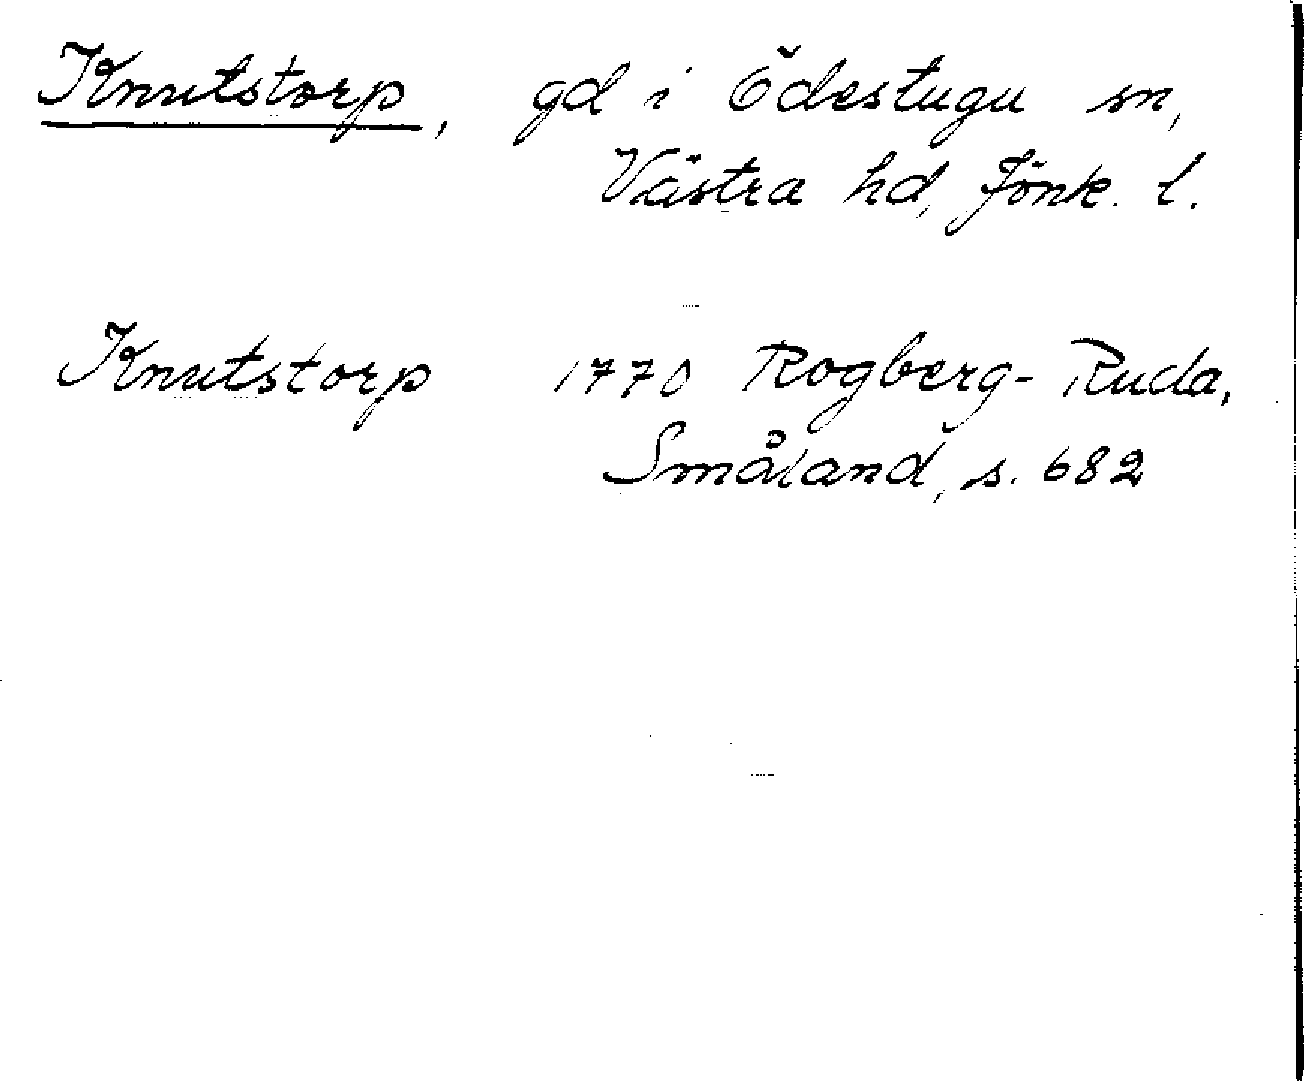 Knutstorp, gd i Ödestugu sn,
Västra hd, Jönk. l.
Knutstorp 1770 Rogberg-Ruda,
Småland, s. 682